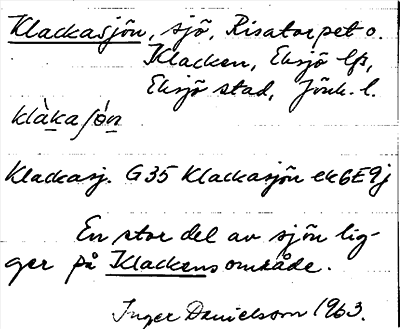 Klackasjön, sjö, Risatorpet o.
Klacken, Eksjö lfs,
Eksjö stad, Jönk. l.
klàka ʃö́n
Klackasj. G35 Klackasjön ek6E9j
En stor del av sjön lig-
ger på Klackens område.
Inger Danielsson 1963.